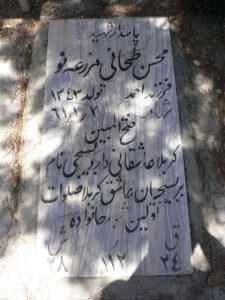 پاسدار شهید
محسن طحانی مزرعه نو
فرزند احمد تولد ۱۳۴۳
شهادت ۶۱/۱/۲
فتح المبین
کربلا عاشقانی دارد بسیجی نام
بر بسیجیان عاشق کربلا صلوات
خانواده
ق ر ش
۲۴ ۱۱۲ ۲۸